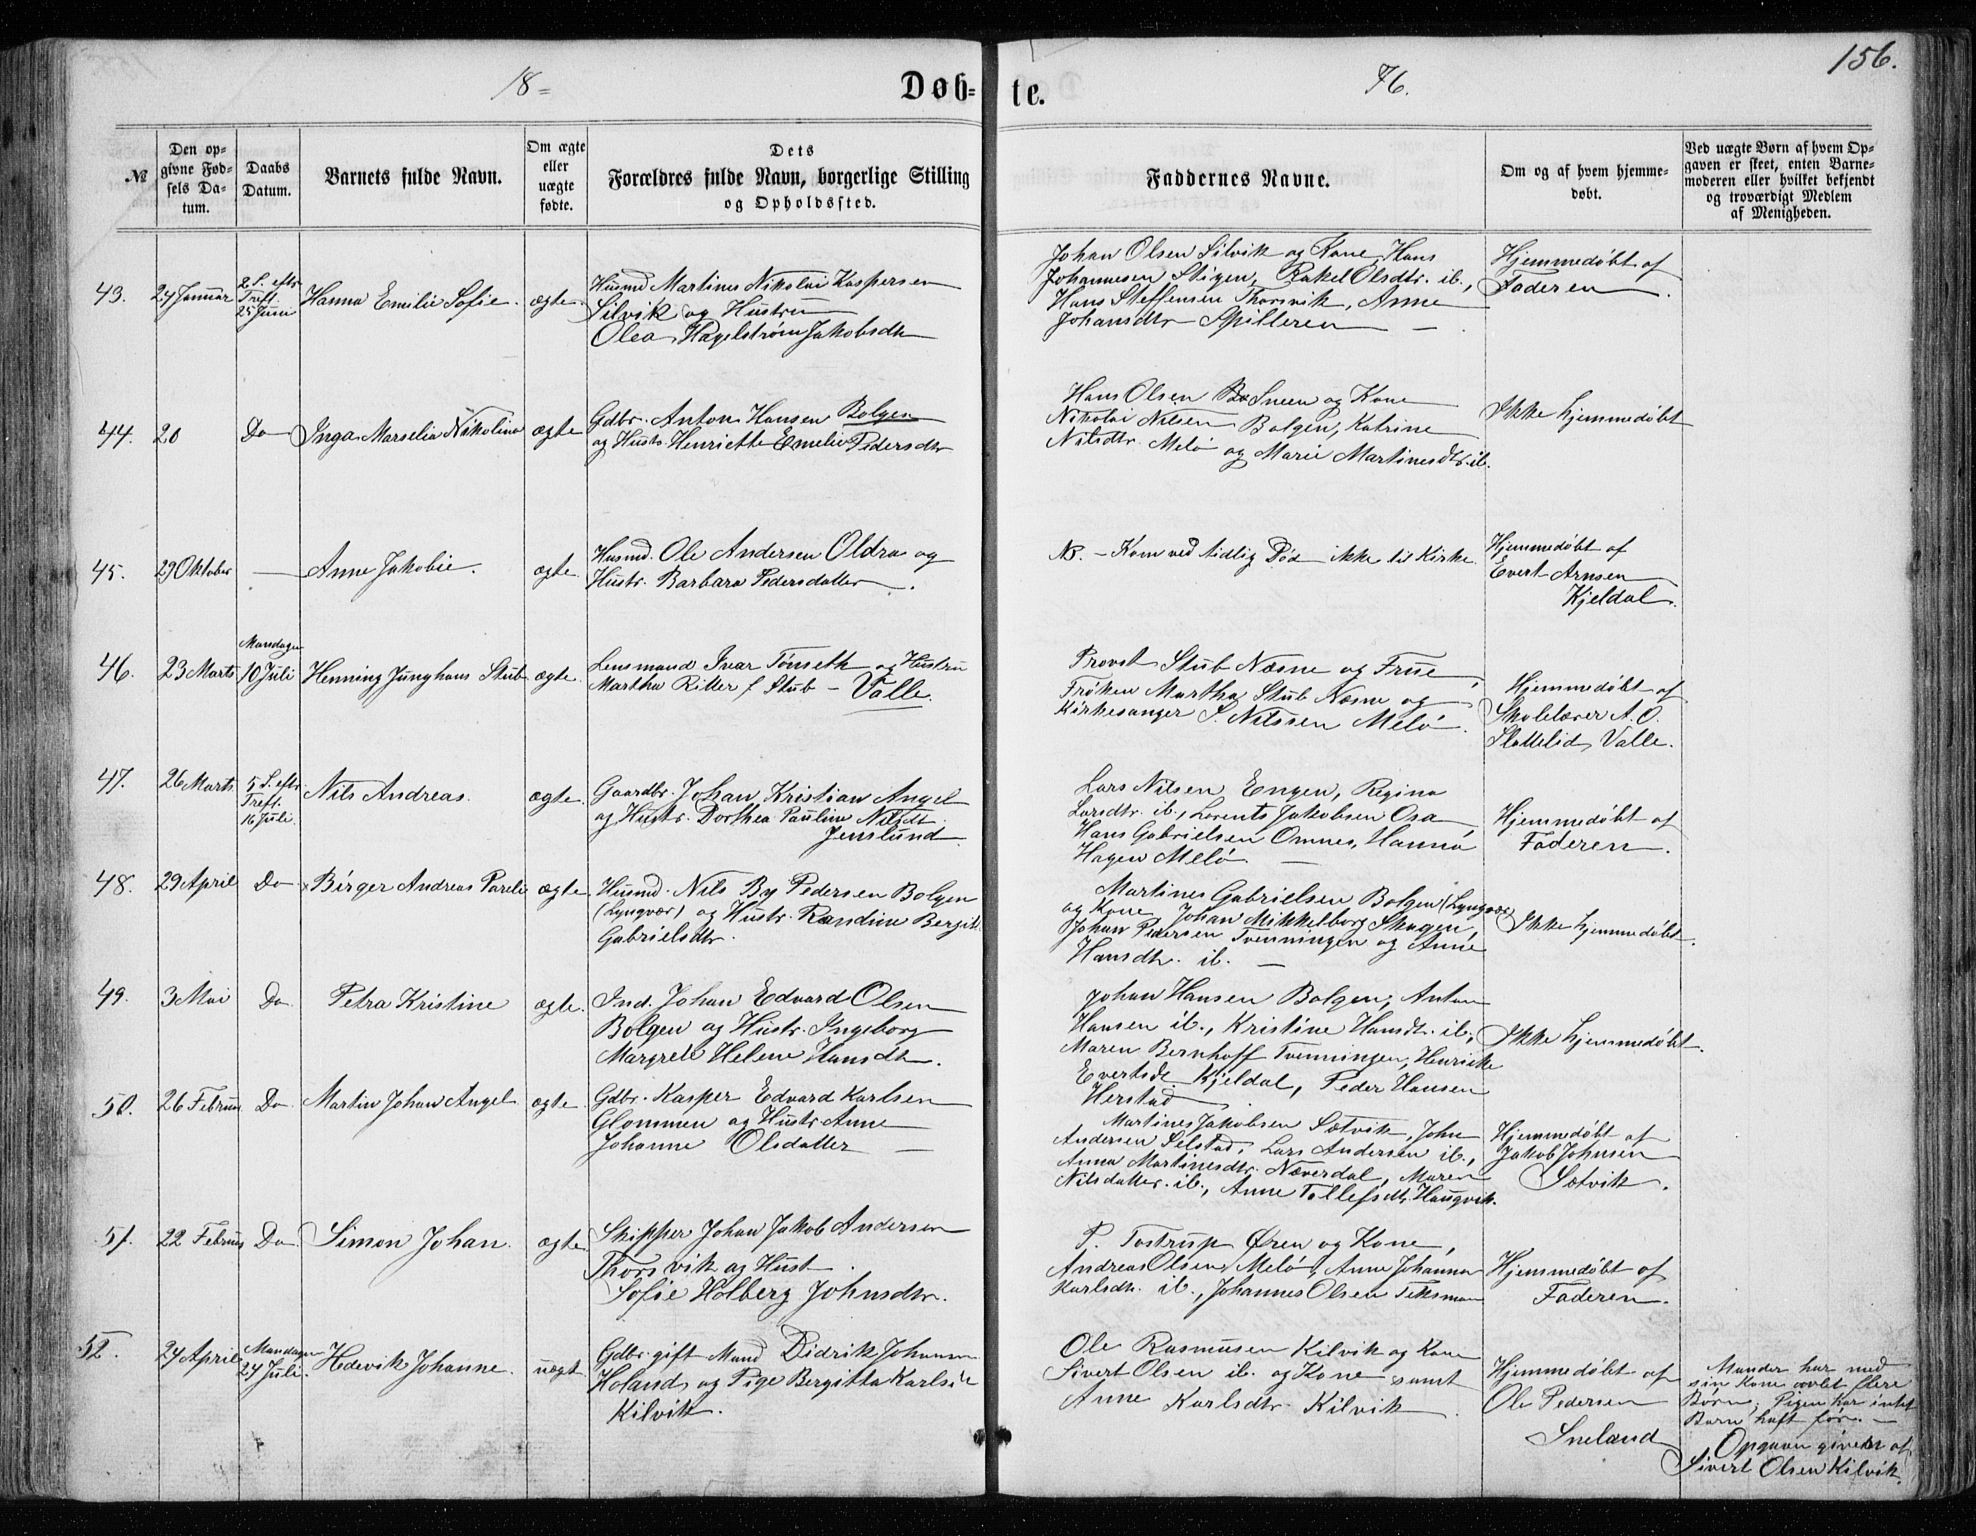 156.
18=
Døb=
te.
76.
№
Den op=
givne Fød=
sels Da=
tum.
Daabs
Datum.
Barnets fulde Navn.
Om ægte
eller
uægte
fødte.
Dets
Forældres fulde Navn, borgerlige Stilling
og Opholdssted.
Faddernes Navne.
Om og af hvem hjemme=
døbt.
Ved uægte Børn af hvem Op=
gaven er skeet, enten Barne=
moderen eller hvilket bekjendt
og troværdigt Medlem
af Menigheden.
43.
24 Januar
2 S. eftr
Tref.
25 Juni
Hanna Emilie Sofie.
ægte
Husmd Martinus Nikolai Kaspersen
Silvik og Hustru
Olea Hagelstrøm Jakobsdtr
Johan Olsen Silvik og Kone, Hans
Johannesen Stigen, Rakel Olsdtr. ib.,
Hans Steffensen Thorsvik, Anne
Johansdtr Spilleren —
Hjemmedøbt af
Faderen
44.
20
Do
Inga Marselia Nikolina
ægte
Gdbr. Anton Hansen Bolgen
og Hustr. Henriette Emelie Pedersdtr
Hans Olsen Sneen og Kone
Nikolai Nilsen Bolgen, Katrine
Nilsdtr. Melö og Marie Martinesdtr. ib.
Ikke hjemmedøbt
45.
29 Oktober
—
Anne Jakobie.
ægte
Husmd. Ole Andersen Oldra og
Hustr. Barbara Pedersdatter.
NB. – Kom ved tidlig Død ikke til Kirke.
Hjemmedøbt af
Evert Arnsen
Kjeldal.
46.
23 Marts
Mandagen
10 Juli
Henning Junghans Stub
ægte.
Lensmand Ivar Tönseth og Hustru
Martha Ritter f. Stub – Valle.
Provst Stub Næsne og Frue,
Fröken Martha Stub Næsne og
Kirkesanger S. Nilssen Melö.
Hjemmedøbt af
Skolelærer A. O.
Slattelid, Valle.
47.
26 Marts
5 S. eftr
Tref.
16 Juli.
Nils Andreas.
ægte.
Gaardbr. Johan Kristian Angel
og Hustr. Dorthea Pauline Nilsdt.
Jenslund.
Lars Nilsen Engen, Regina
Larsdtr. ib., Lorents Jakobsen Osa,
Hans Gabrielsen Omnes, Hanna
Hagen Melö. —
Hjemmedøbt af
Faderen.
48.
29 April
Do
Birger Andreas Pareli
ægte
Husmd. Nils By Pedersen Bolgen
(Lyngvær) og Hustr. Randine Bergit.
Gabrielsdtr.
Martines Gabrielsen Bolgen (Lyngvær)
og Kone, Johan Mikkelborg Skagen,
Johan Pedersen Tvenningen og Anne
Hansdtr. ib. —
Ikke hjemmedøbt.
49.
3 Mai
Do
Petra Kristine
ægte.
Ind. Johan Edvard Olsen
Bolgen og Hustr. Ingeborg
Margrete Helene Hansdtr.
Johan Hansen Bolgen, Anton
Hansen ib., Kristine Hansdtr. ib.,
Maren Bernhoff Tvenningen, Henrikke
Evertsdt. Kjeldal, Peder Hansen
Herstad
Ikke hjemmedøbt.
50.
26 Februar
Do
Martin Johan Angel
ægte.
Gdbr. Kasper Edvard Karlsen
Glommen og Hustr Anne
Johanne Olsdatter —
Martines Jakobsen Sætvik, John
Andersen Selstad, Lars Andersen ib.,
Anna Martinesdtr. Næverdal, Maren
Nilsdatter ib., Anne Tollefsdtr. Haugvik.
Hjemmedøbt af
Jakob Johnsen
Sætvik.
51.
22 Februar
Do
Simon Johan.
ægte
Skipper Johan Jakob Andersen
Thorsvik og Hust.
Sofie Holberg Johnsdtr.
P. Tostrup Ören og Kone,
Andreas Olsen Melö, Anne Johanna
Karlsdtr. ib., Johannes Olsen Teksmon
Hjemmedøbt af
Faderen.
52.
24 April
Mandagen
24 Juli.
Hedevik Johanne.
uægt
Gdbr. gift Mand Didrik Johansen
Holand og Pige Bergitta Karlsdt
Kilvik.
Ole Rasmusen Kilvik og Kone
Sivert Olsen ib. og Kone samt
Anne Karlsdtr. Kilvik.
Hjemmedøbt af
Ole Pedersen
Sneland
Manden har med
sin Kone avlet flere
Børn; Pigen har intet
Barn haft før. —
Opgaven given af
Sivert Olsen Kilvik.